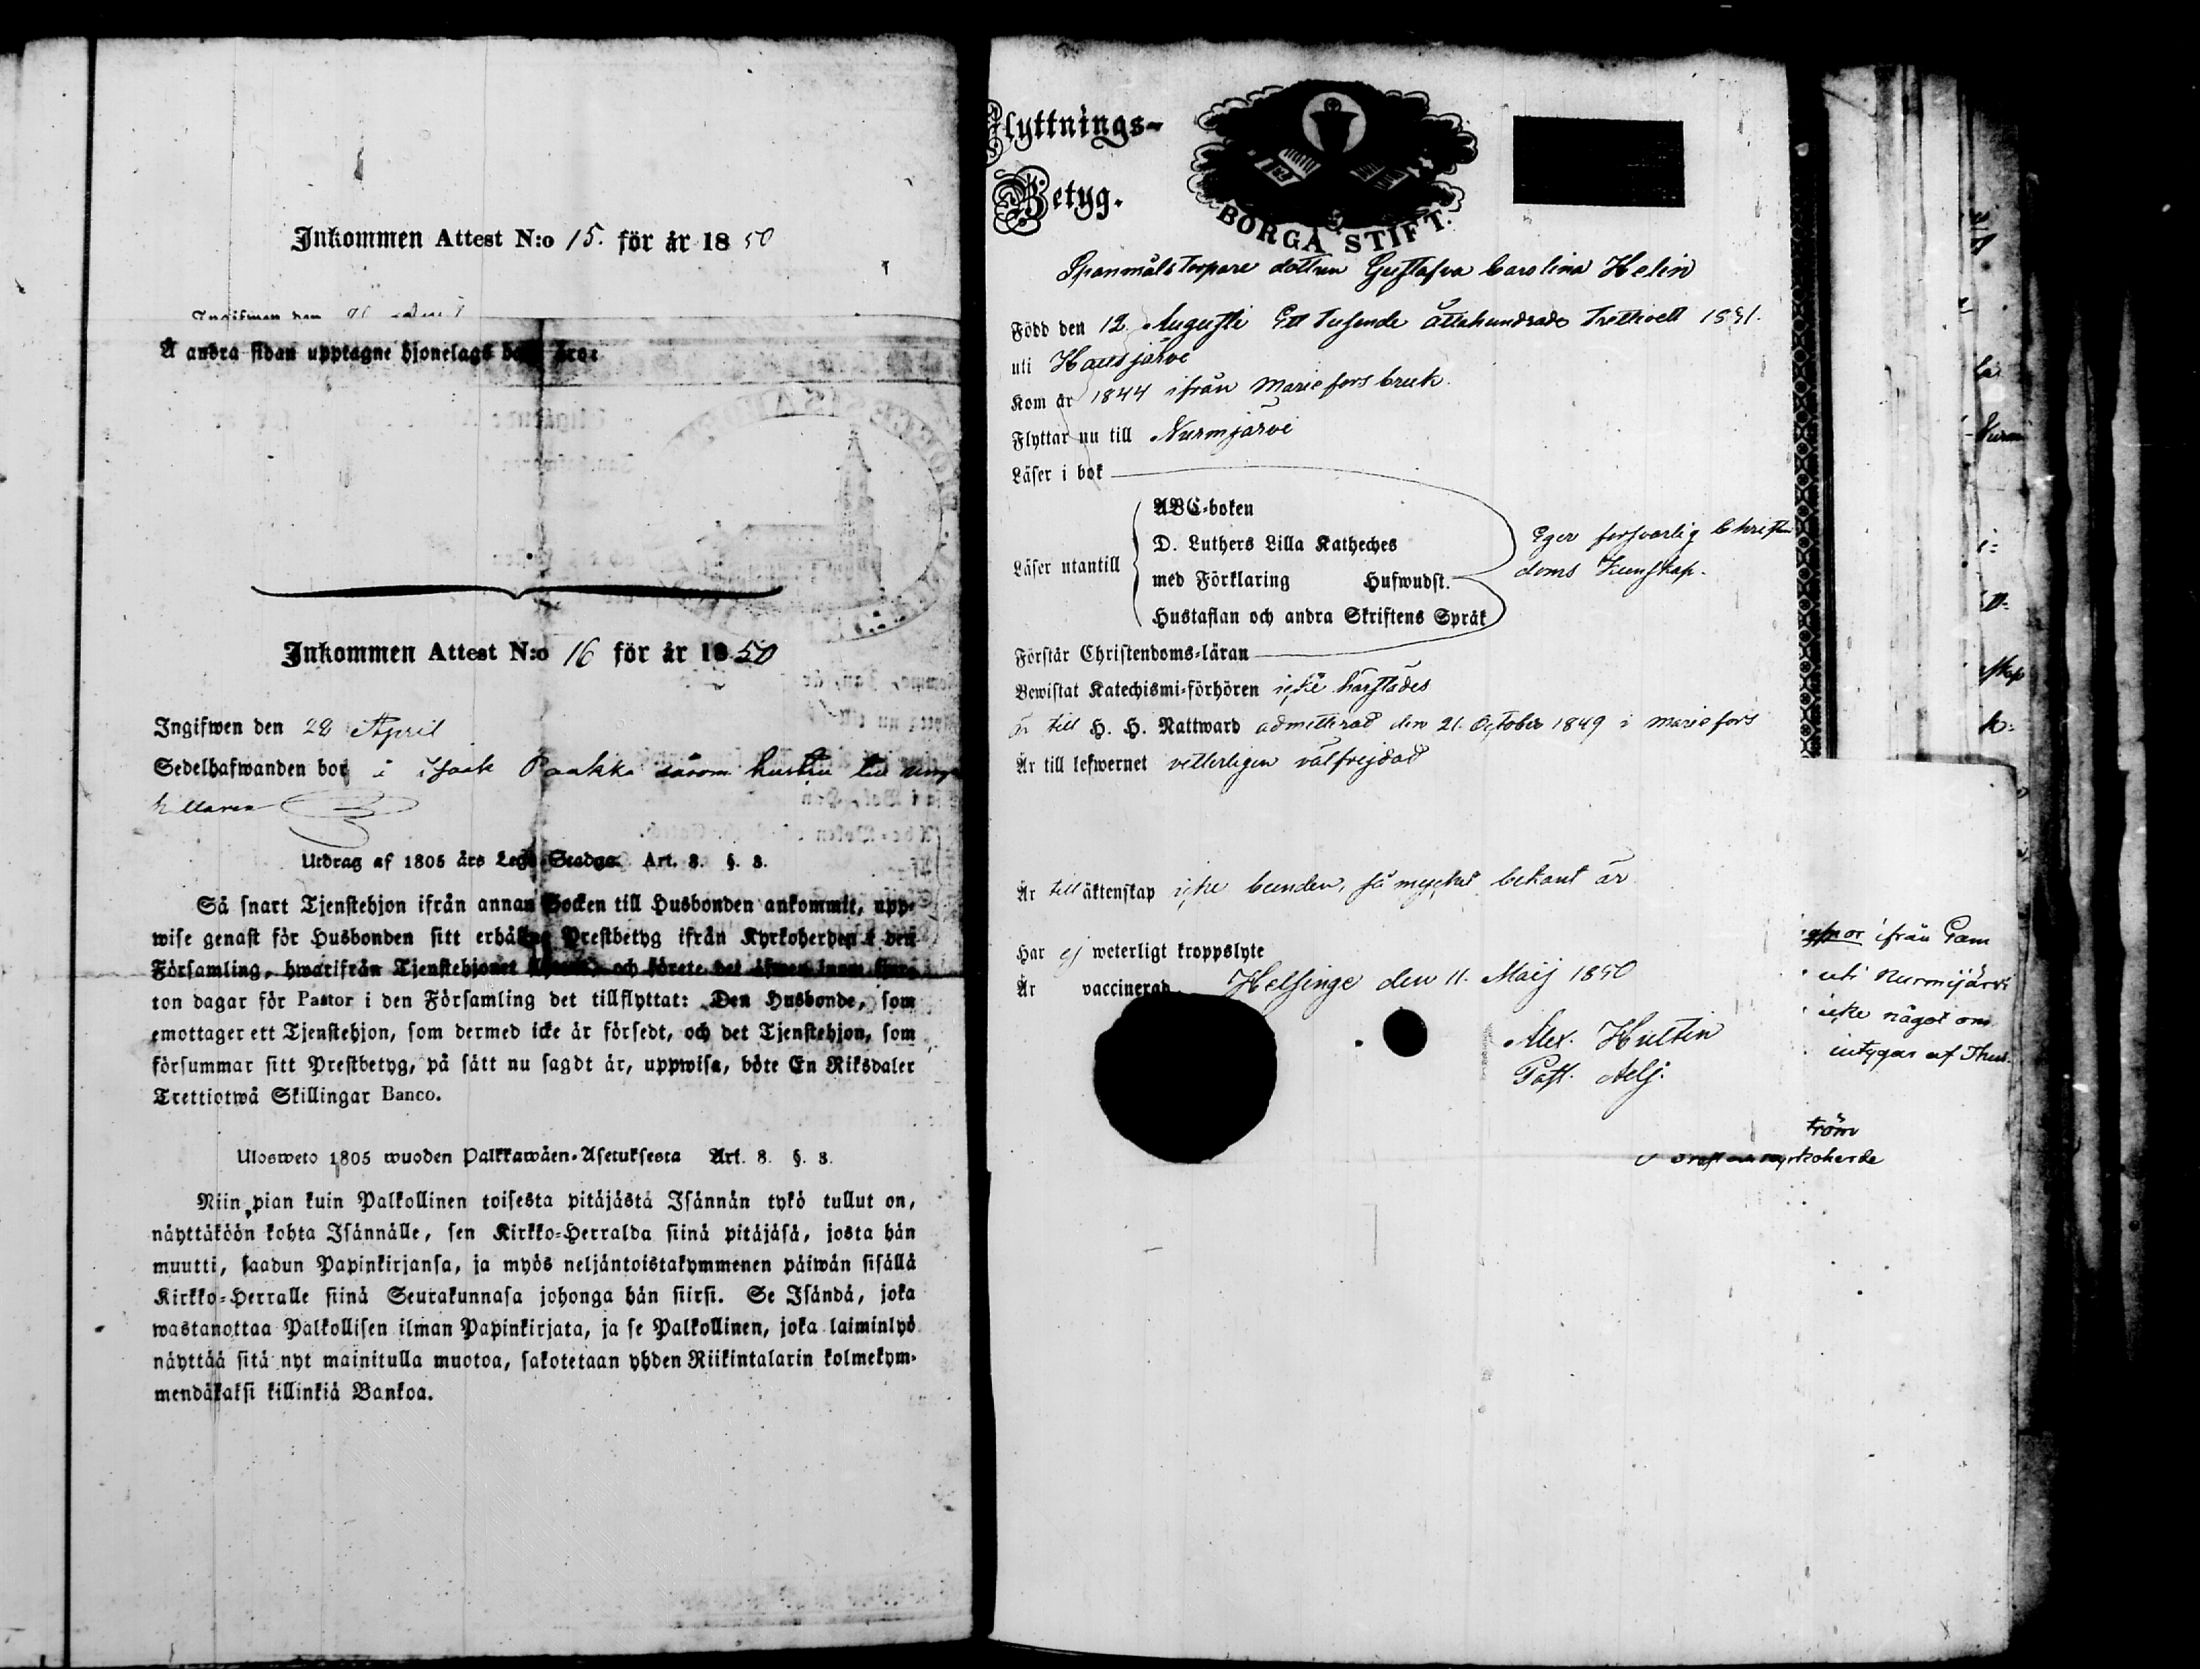 Inkommen Attest N:o 15. för år 1850
Ingifwen den
Å andra sidan upptagne hjonelags
Inkommen Attest N:o 16 för år 1850
Ingifwen den 28 April
Sedelhafwanden bor i Isaak Paakka såsom hustru till
Utdrag af 1805 års Lego-Stadga. Art. 8. §. 3.
Så snart Tjenstehjon ifrån annan Socken till Husbonden ankommit, upp-
wise genast för Husbonden sitt erhållne Prestbetyg ifrån Kyrkoherden i den
Församling, hwarifrån Tjenstehjonet och förete det äfwen inom fjor-
ton dagar för Pastor i den Församling det tillflyttat: Den Husbonde, som
emottager ett Tjenstehjon, som dermed icke är försedt, och det Tjenstehjon, som
försummar sitt Prestbetyg, på sätt nu sagdt är, uppwisa, böte En Riksdaler
Trettiotwå Skillingar Banco.
Ulosweto 1805 wuoden Palkkawäen-Asetuksesta Art. 8. §. 3.
Niin pian kuin Palkollinen toisesta pitäjästä Isännän tykö tullut on,
näyttäköön kohta Isännälle, sen Kirkko-Herralda siinä pitäjäsä, josta hän
muutti, saadun Papinkirjansa, ja myös neljäntoistakymmenen päiwän sisällä
Kirkko-Herralle siinä Seurakunnasa johonga hän siirsi. Se Isändä, joka
wastanottaa Palkollisen ilman Papinkirjata, ja se Palkollinen, joka laiminlyö
näyttää sitä nyt mainitulla muotoa, sakotetaan yhden Riikintalarin kolmekym-
mendäkaksi killinkiä Bankoa.
Flyttnings-
Betyg.
BORGÅ STIFT.
Spanmåls Torpare dottren Gustafva Carolina Helin
Född den 12 Augusti Ett Tusende åttahundrade Trettioett 1831.
uti Hausjärvi
Kom år 1844 ifrån Mariefors bruk.
Flyttar nu till Nurmijärvi
Läser i bok
Läser utantill
ABC-boken
D. Luthers Lilla Katheches
med Förklaring Hufwudst.
Hustaflan och andra Skriftens Språk
Eger forsvarlig Christen
doms Kunskap.
Förstår Christendoms-läran
Bewistat Katechismi-förhören icke härstädes
Är till H. H. Nattward admitterad den 21. October 1849 i Mariefors
Är till lefwernet vetterligen välfrejdad
Är till äktenskap icke bunden, så mycket bekant är
Har ej weterligt kroppslyte
Är vaccinerad. Helsinge den 11. Maij 1850
Alex. Hultin
Past. Adj.
ifrån Gam
uti Nurmijärvi
icke något om
intygar af Thus.
tröm